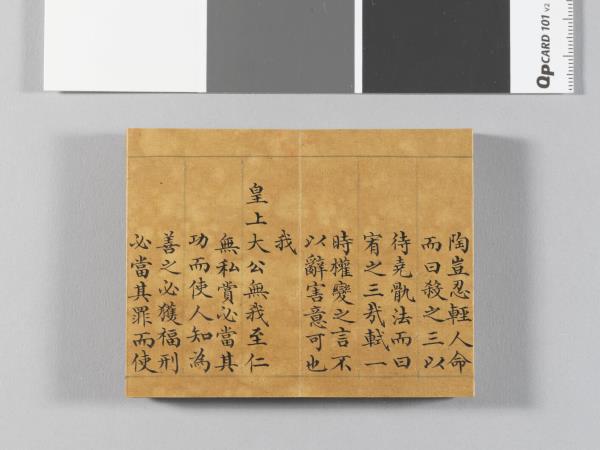 QPCARD 101 v2
陶豈忍輕人命
而曰殺之三以
待堯執法而曰
宥之三哉軾一
時權變之言不
以辭害意可也
我
皇上大公無我至仁
無私賞必當其
功而使人知為
善之必獲福刑
必當其罪而使